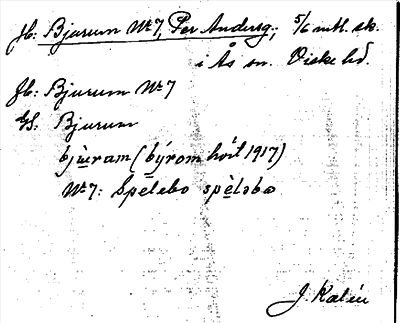 Jb: Bjurum Nr 7, Per Andersg.; 5/6 mtl. sk.
i Ås sn. Viske hd.
Jb: Bjurum Nr 7
GS: Bjurum
bjùram (býrom hört 1917)
Nr 7: Spelabo spèlabo
J. Kalén